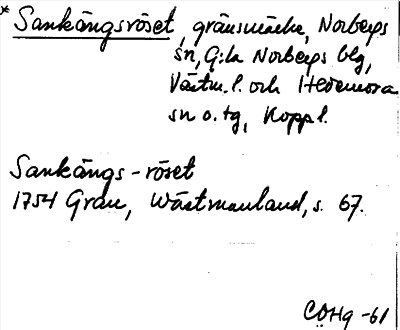 * Sankängsröset, gränsmärke, Norbergs
sn, G:la Norbergs blg,
Västm. l. och Hedemora
sn o. tg, Kopp l.
Sankängs-röset
1754 Grau, Wästmanland, s. 67.
CÖHg -61